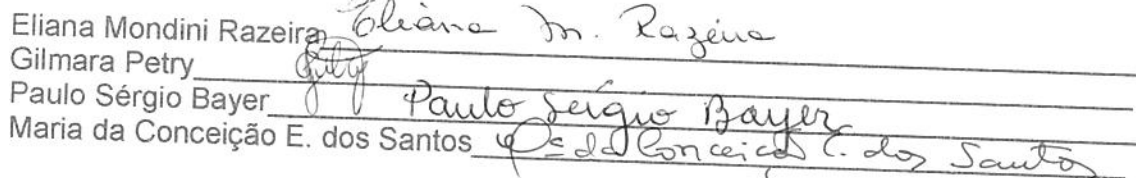 Eliana Mondini Razeira Eliana M. Razeira
Gilmara Petry
Paulo Sérgio Bayer Paulo Sérgio Bayer
Maria da Conceição E. dos Santos Mª da Conceição E. dos Santos